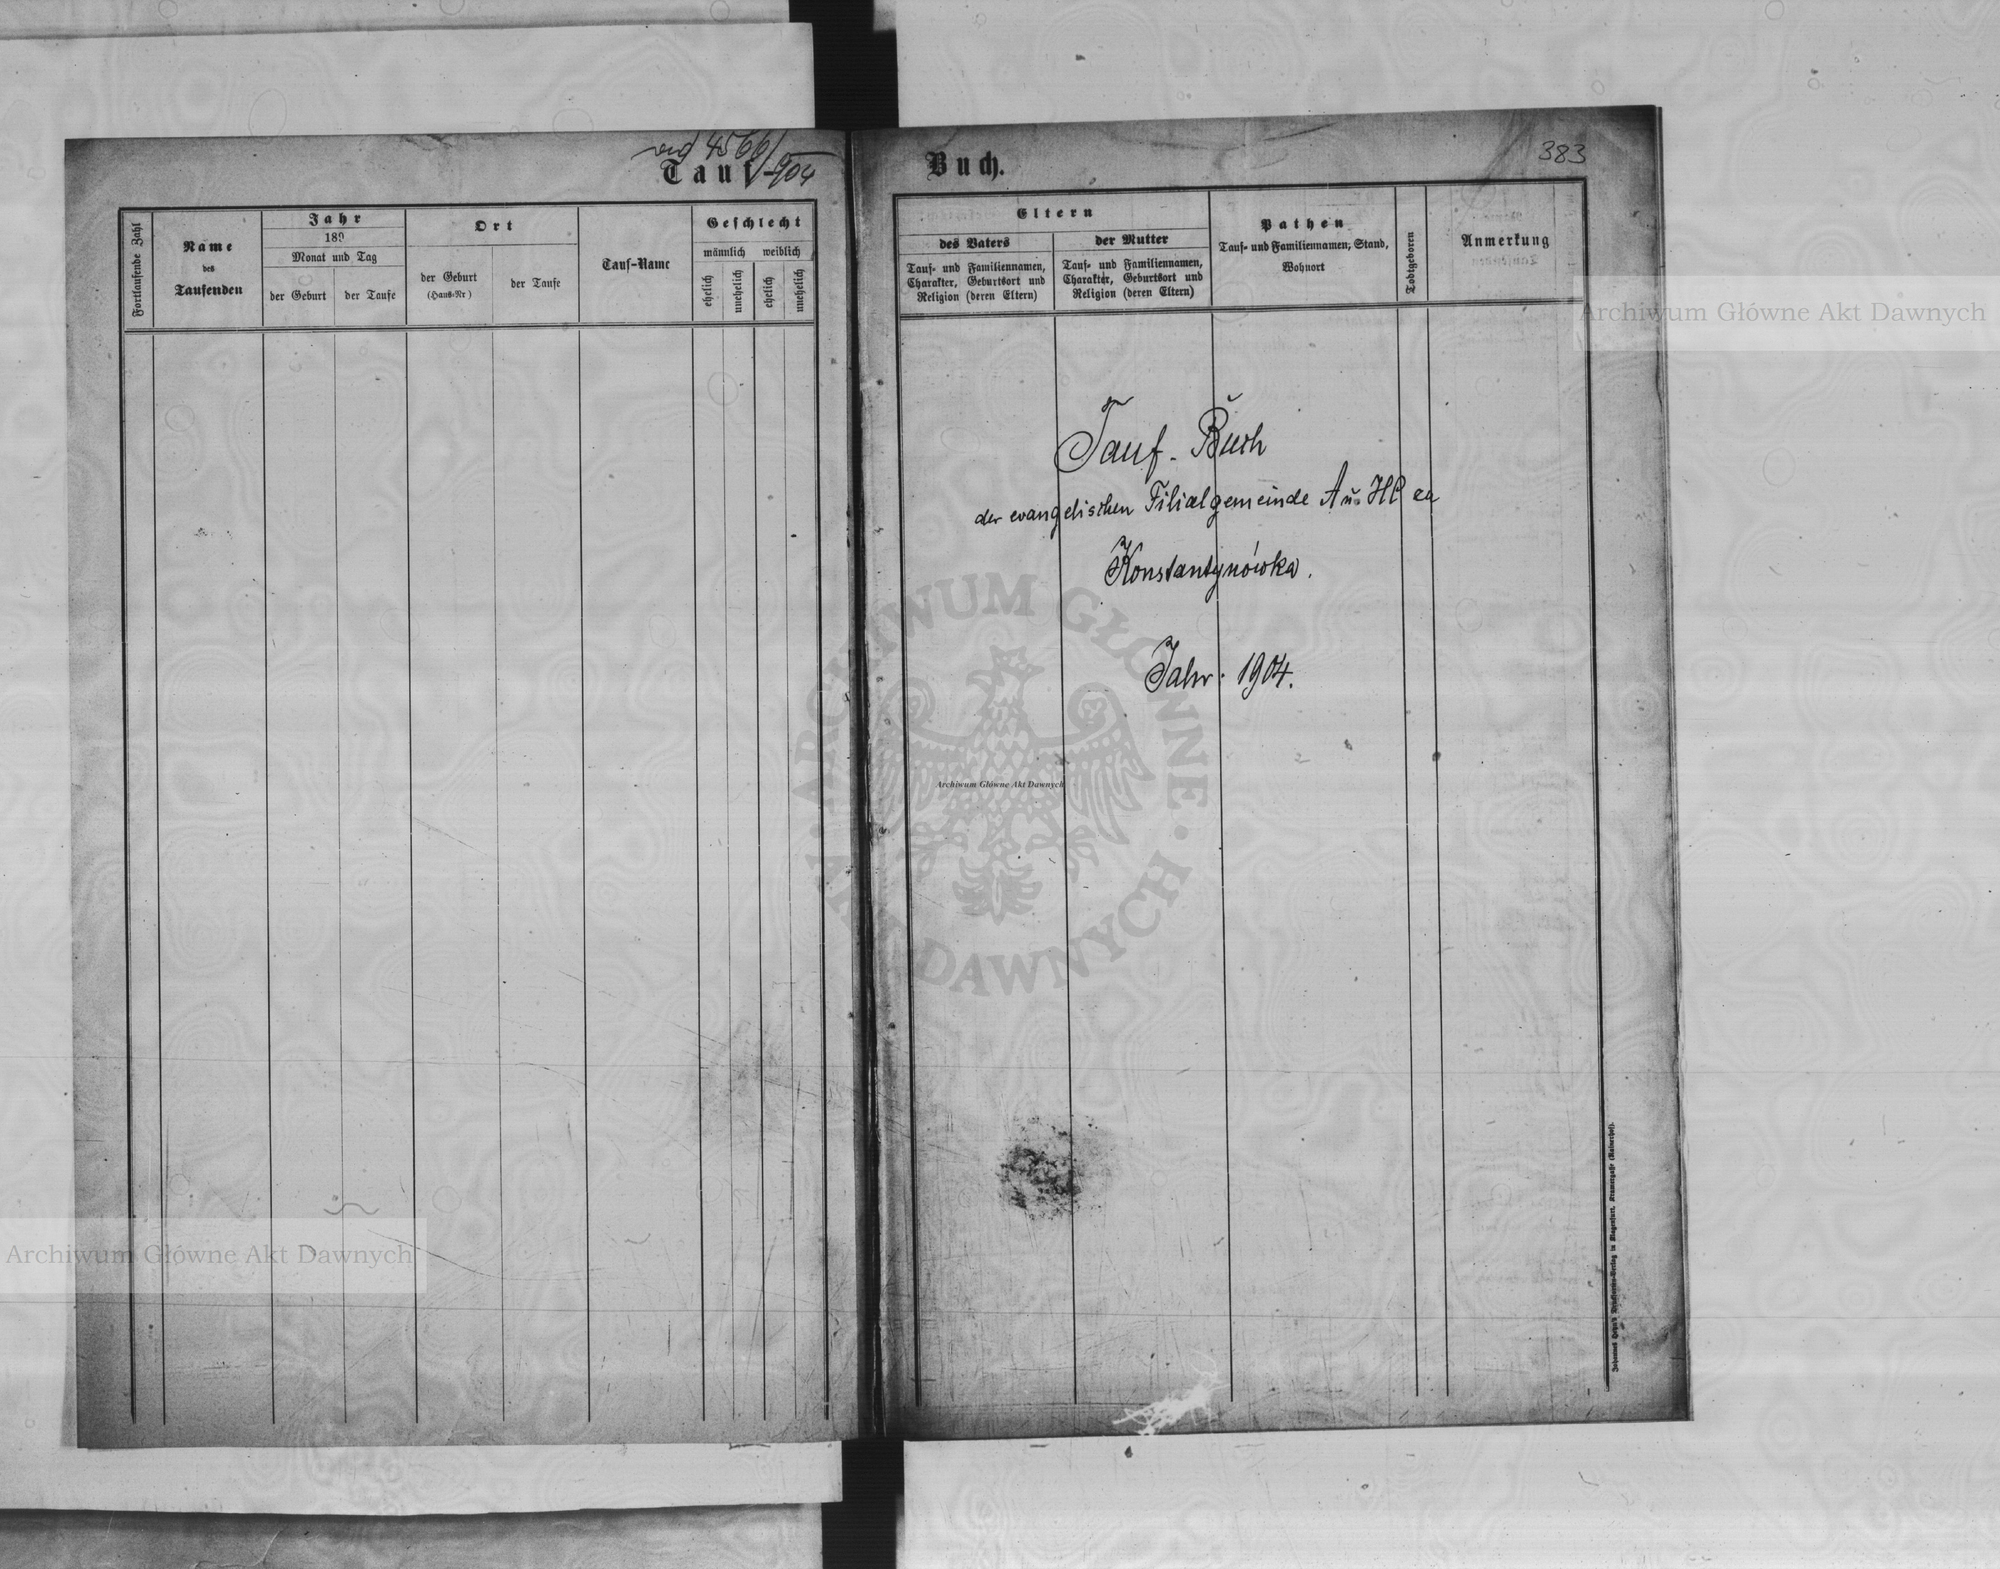 ad 4566/904
Tauf-
Fortlaufende Zahl
Name
des
Taufenden
Jahr
189
Monat und Tag
der Geburt
der Taufe
Ort
der Geburt
(Haus-Nr)
der Taufe
Tauf-Name
Geschlecht
männlich weiblich
ehelich
unehelich
ehelich
unehelich
Buch.
383
Eltern
des Vaters
Tauf- und Familiennamen,
Charakter, Geburtsort und
Religion (deren Eltern)
der Mutter
Tauf- und Familiennamen,
Charakter, Geburtsort und
Religion (deren Eltern)
Pathen
Tauf- und Familiennamen, Stand,
Wohnort
Todtgeboren
Anmerkung
Tauf-Buch
der evangelischen Filialgemeinde A u. HB
Konstantynówka.
Jahr 1904.
Archiwum Główne Akt Dawnych
ARCHIWUM GŁÓWNE
AKT DAWNYCH
Archiwum Główne Akt Dawnych
Archiwum Główne Akt Dawnych